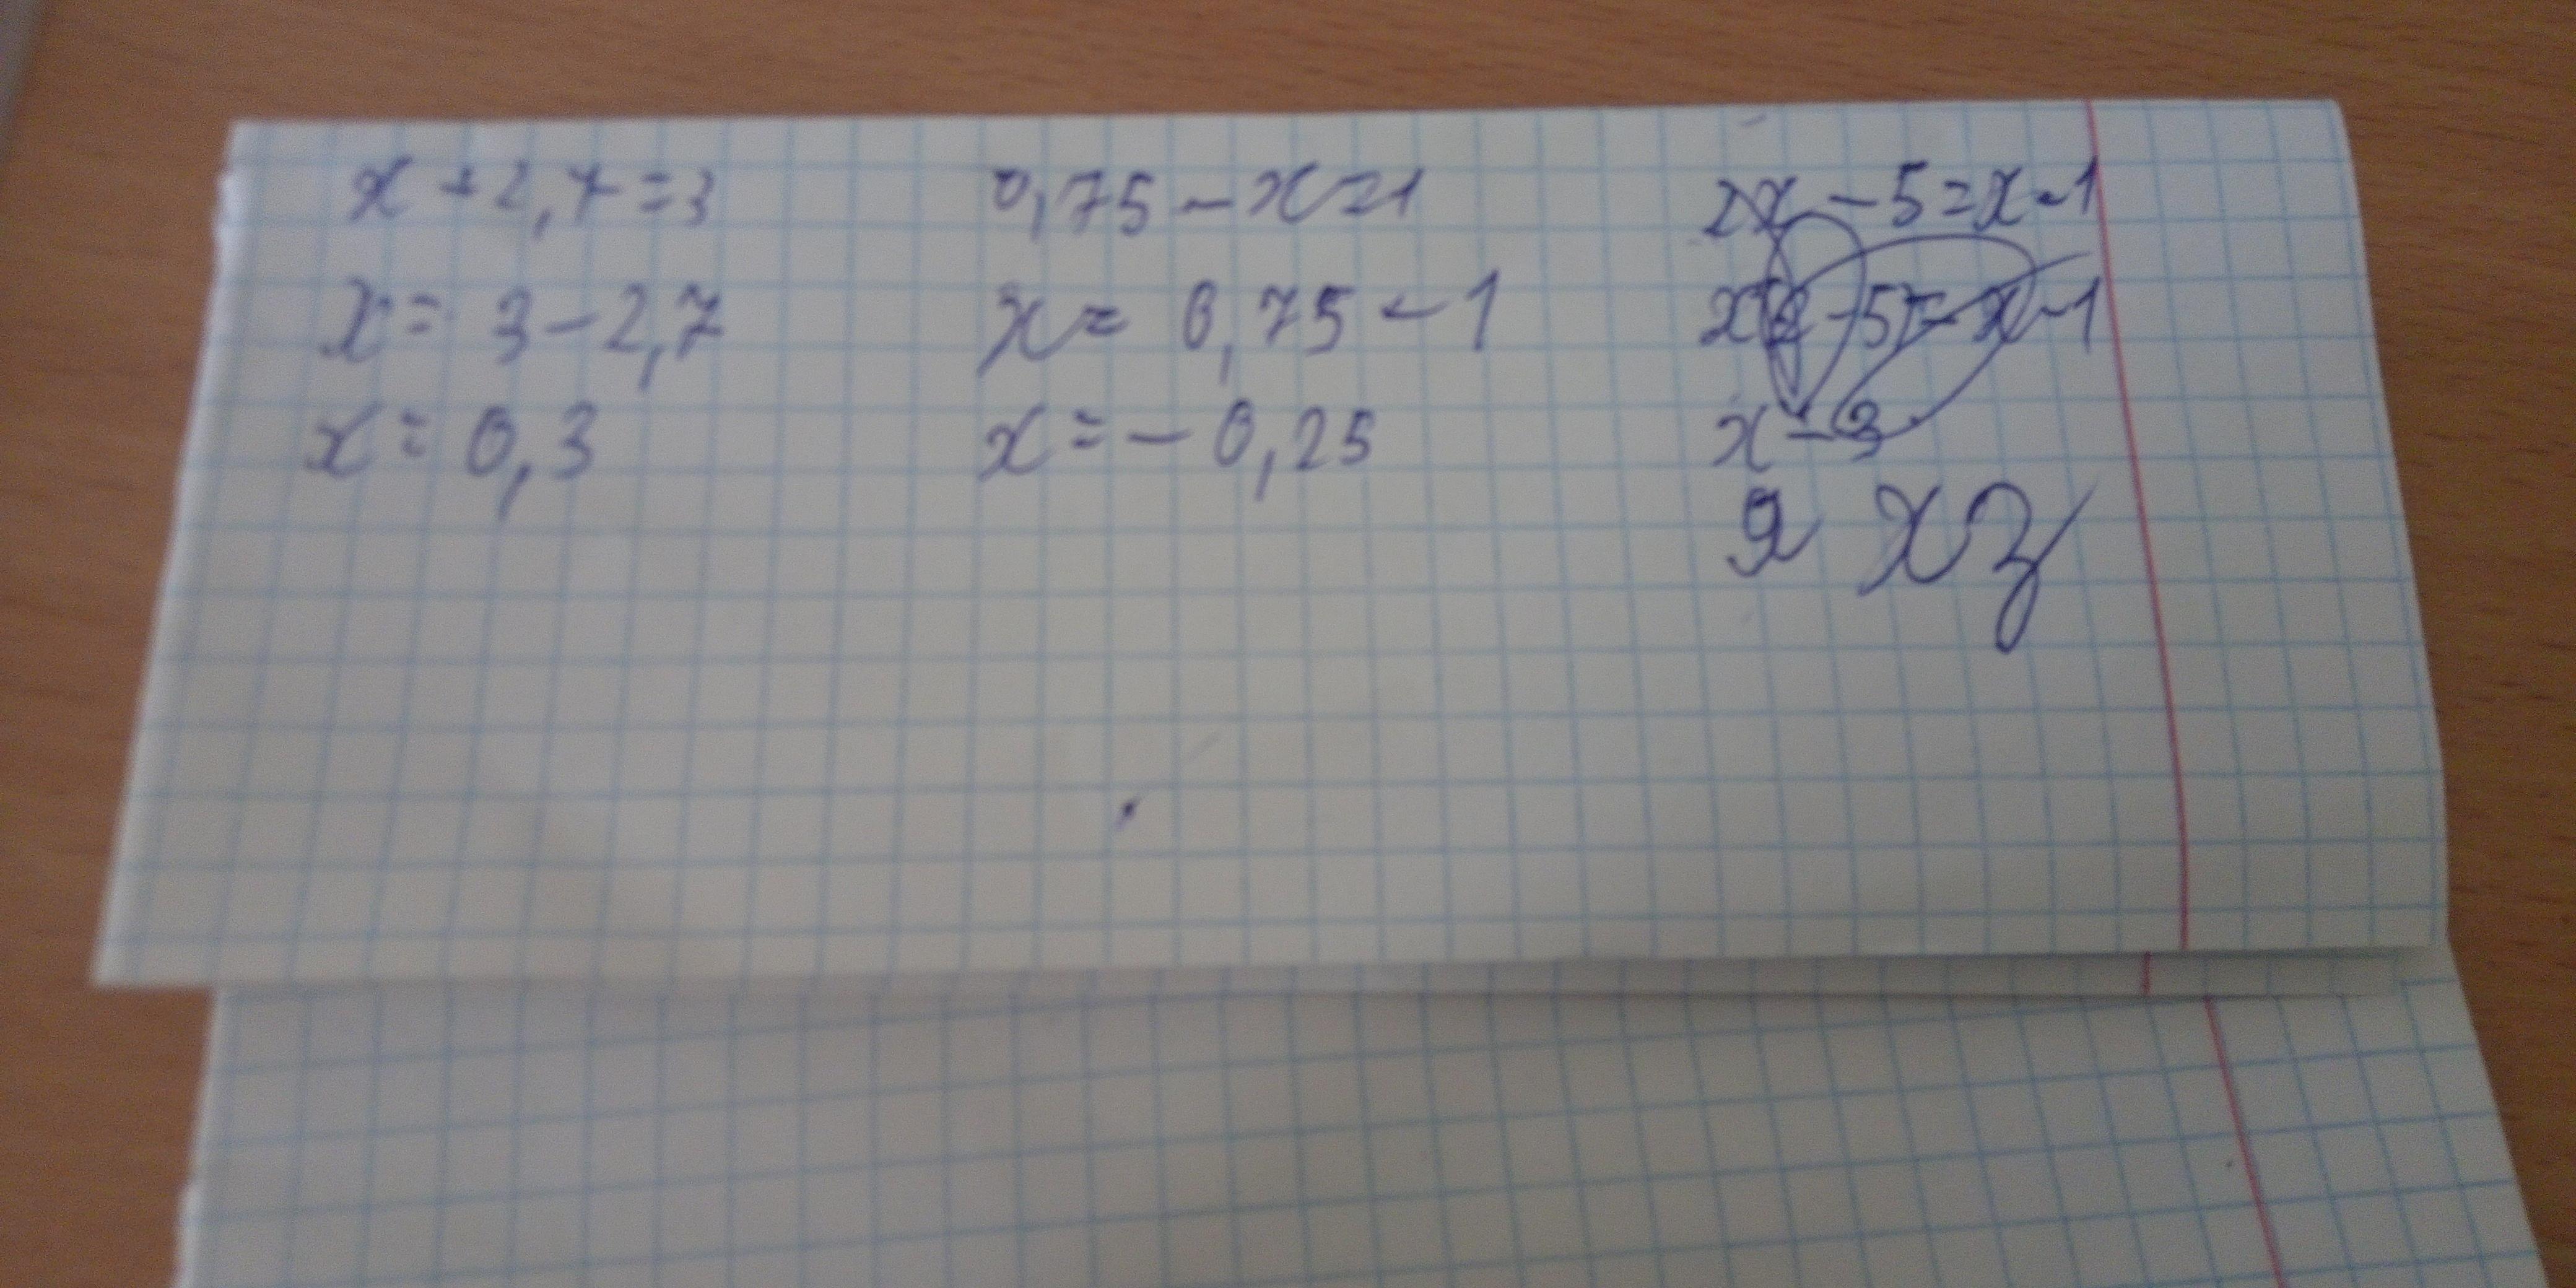 x + 2,7 = 3
x = 3 - 2,7
x = 0,3
0,75 - x = 1
x = 0,75 - 1
x = - 0,25
2x - 5 = x - 1
x(2 - 5) = x - 1
x - 3
я хз